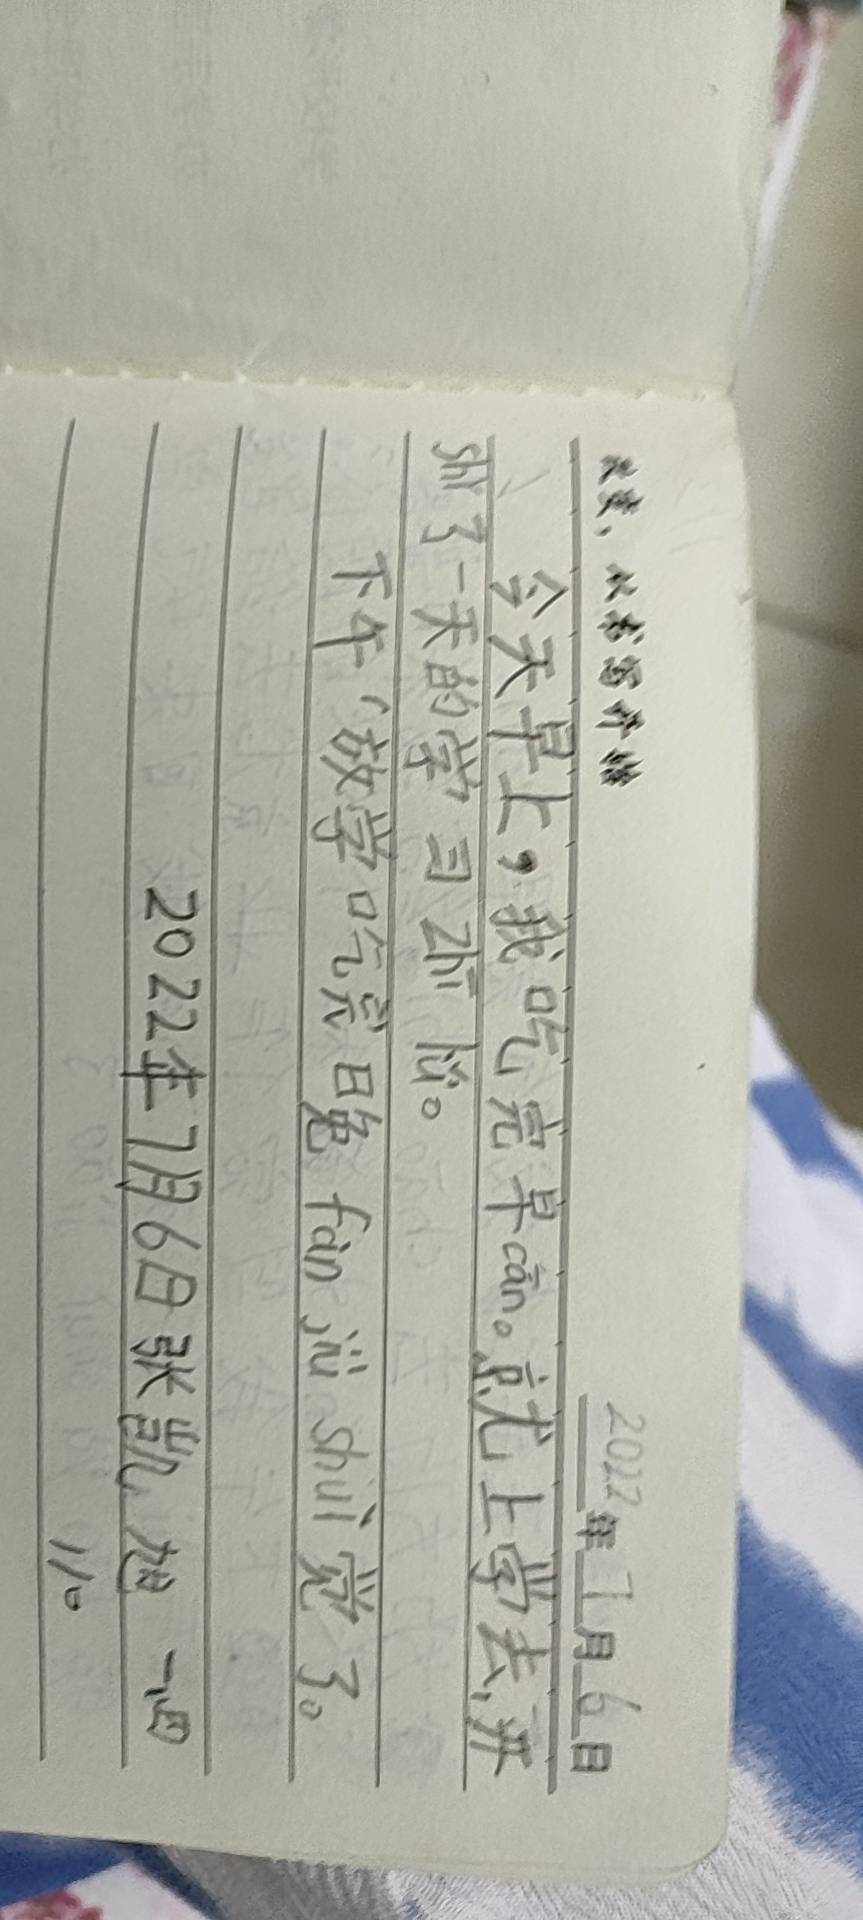 改变，从书写开始
2022年7月6日
今天早上，我吃完早cān。就上学去，开
shǐ了一天的学习zhī lǚ。
下午，放学吃完晚fàn jiù shuì觉了。
2022年7月6日张凯旭 一、四